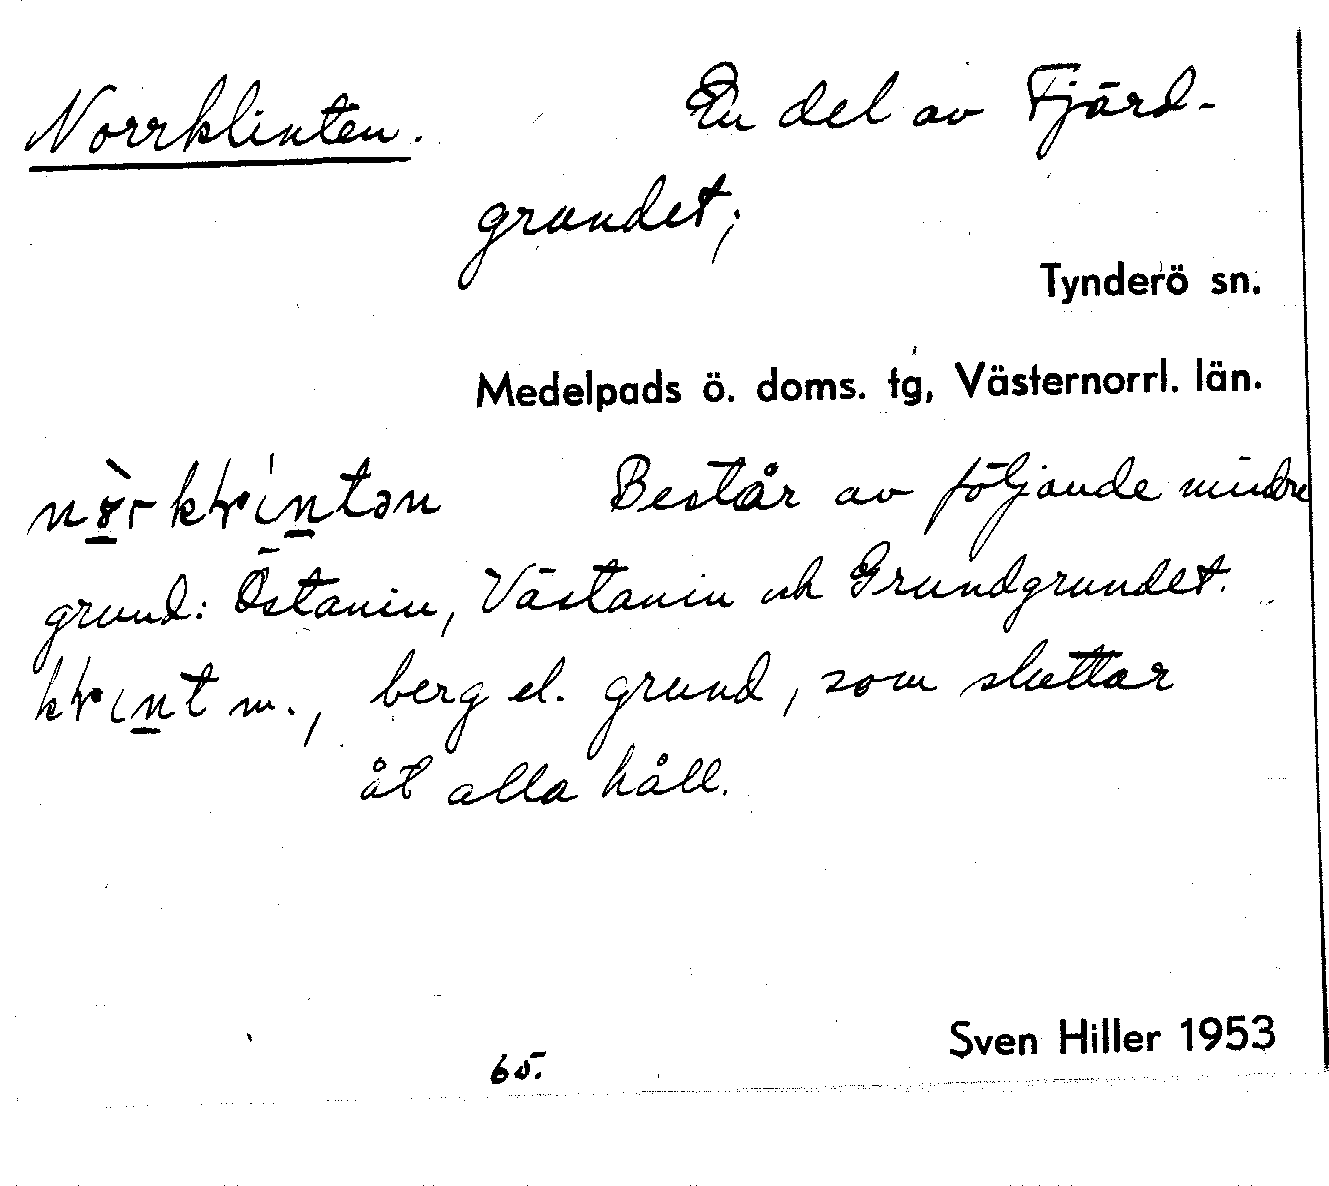 Norrklinten. En del av Fjärd-
grundet;
Tynderö sn.
Medelpads ö. doms. tg, Västernorrl. län.
Består av följande mindre
grund: Östanin, Västanin och Grundgrundet.
m., berg el. grund, som sluttar
åt alla håll.
Sven Hiller 1953
65.